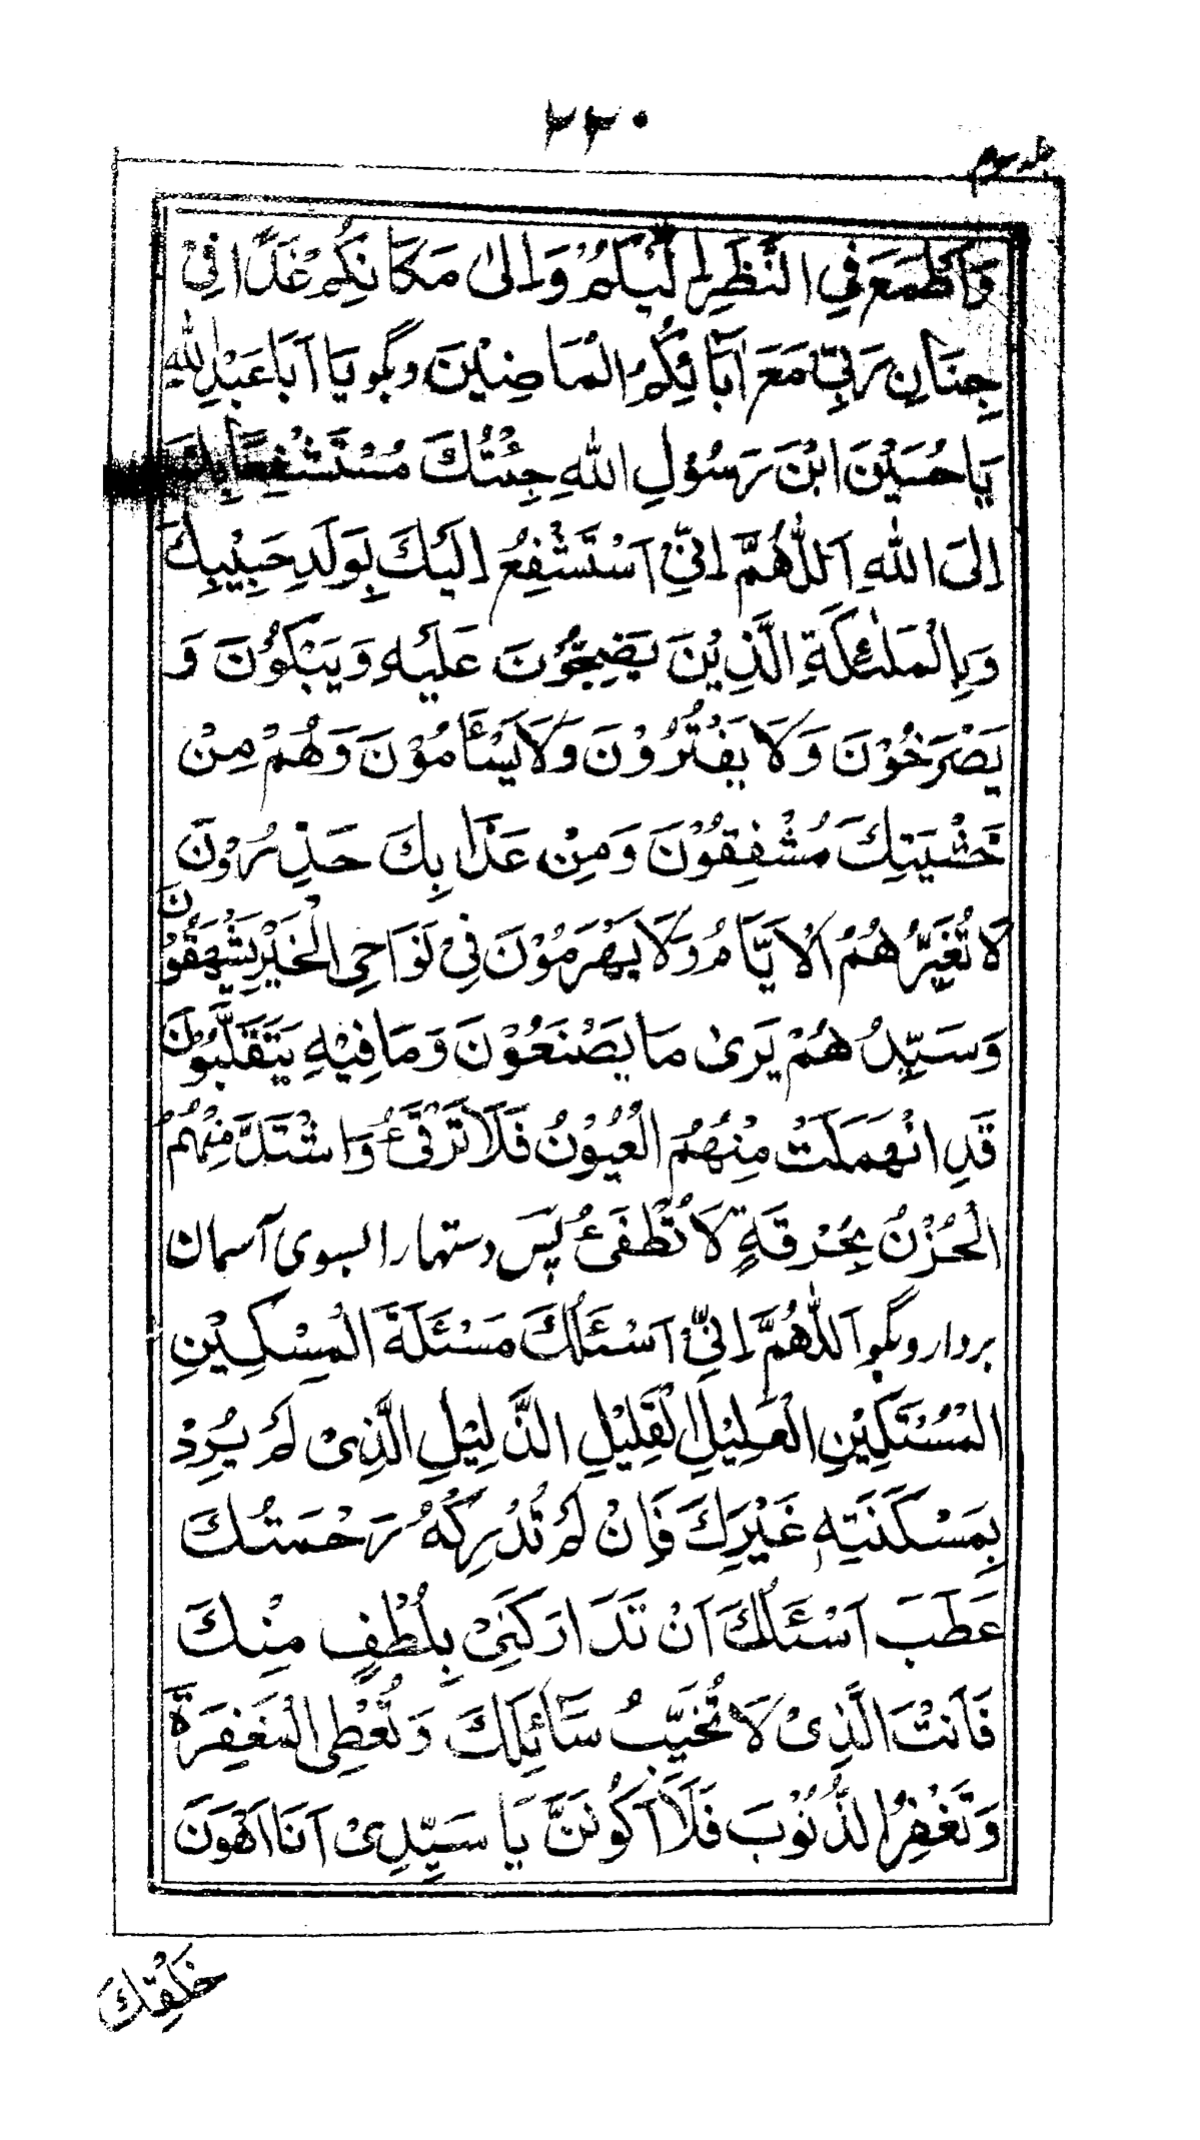 ۲۲۰
جلد سوم
وَاَطْمَعَ فِي النَّظَرِ اِلَيْكُمْ وَاِلىٰ مَكَانِكُمْ غَدًا فِيْ
جِنَانِ رَبِّيْ مَعَ اٰبَائِكُمُ الْمَاضِيْنَ وبگو يَا اَبَا عَبْدِ اللهِ
يَا حُسَيْنَ ابْنَ رَسُوْلِ اللهِ جِئْتُكَ مُسْتَشْفِعًا بِكَ
اِلَى اللهِ اَللّٰهُمَّ اِنِّيْ اَسْتَشْفِعُ اِلَيْكَ بِوَلَدِ حَبِيْبِكَ
وَبِالْمَلٰئِكَةِ الَّذِيْنَ يَضِجُّوْنَ عَلَيْهِ وَيَبْكُوْنَ وَ
يَصْرَخُوْنَ وَلَا يَفْتُرُوْنَ وَلَا يَسْأَمُوْنَ وَهُمْ مِنْ
خَشْيَتِكَ مُشْفِقُوْنَ وَمِنْ عَذَابِكَ حَذِرُوْنَ
لَا تُغَيِّرُهُمُ الْاَيَّامُ وَلَا يَهْرَمُوْنَ فِيْ نَوَاحِي الْخَيْرِ يَشْهَقُوْنَ
وَسَيِّدُهُمْ يَرىٰ مَا يَصْنَعُوْنَ وَمَا فِيْهِ يَتَقَلَّبُوْنَ
قَدِ انْهَمَلَتْ مِنْهُمُ الْعُيُوْنُ فَلَا تَرْقَىءُ وَاشْتَدَّ مِنْهُمُ
الْحُزْنُ بِحُرْقَةٍ لَا تُطْفَىءُ پَس دستها را بسوی آسمان
بردار وبگو اَللّٰهُمَّ اِنِّيْ اَسْئَلُكَ مَسْئَلَةَ الْمِسْكِيْنِ
الْمُسْتَكِيْنِ الْعَلِيْلِ الْقَلِيْلِ الذَّلِيْلِ الَّذِىْ لَمْ يُرِدْ
بِمَسْكَنَتِهِ غَيْرَكَ فَاِنْ لَمْ تُدْرِكْهُ رَحْمَتُكَ
عَطَبَ اَسْئَلُكَ اَنْ تَدَارَكَنِىْ بِلُطْفٍ مِنْكَ
فَاَنْتَ الَّذِىْ لَا تُخَيِّبُ سَائِلَكَ وَتُعْطِى الْمَغْفِرَةَ
وَتَغْفِرُ الذُّنُوْبَ فَلَا اَكُوْنَنَّ يَا سَيِّدِىْ اَنَا اَهْوَنَ
خَلْقِكَ